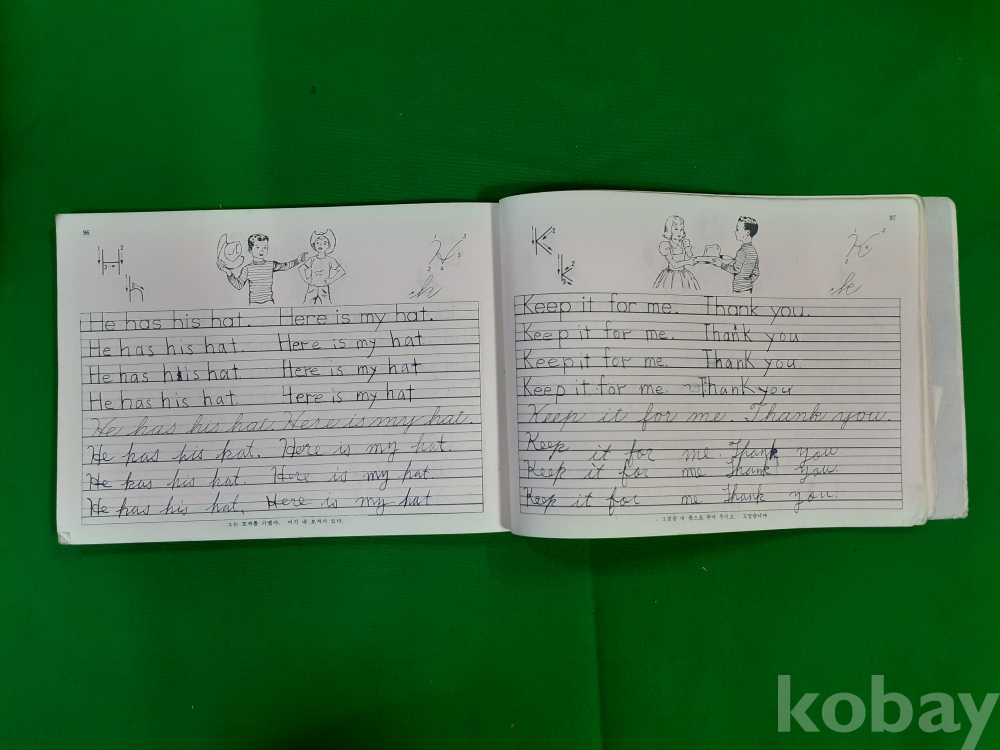 96
He has his hat. Here is my hat.
He has his hat. Here is my hat
He has his hat Here is my hat
He has his hat Here is my hat
He has his hat. Here is my hat.
He has his hat. Here is my hat.
He has his hat. Here is my hat.
He has his hat. Here is my hat
그는 모자를 가졌다. 여기 내 모자가 있다.
97
Keep it for me. Thank you.
Keep it for me. Thank you
Keep it for me. Thank you
Keep it for me. Thank you
Keep it for me. Thank you.
Keep it for me. Thank you.
Keep it for me Thank you.
Keep it for me Thank you.
고맙습니다.
kobay